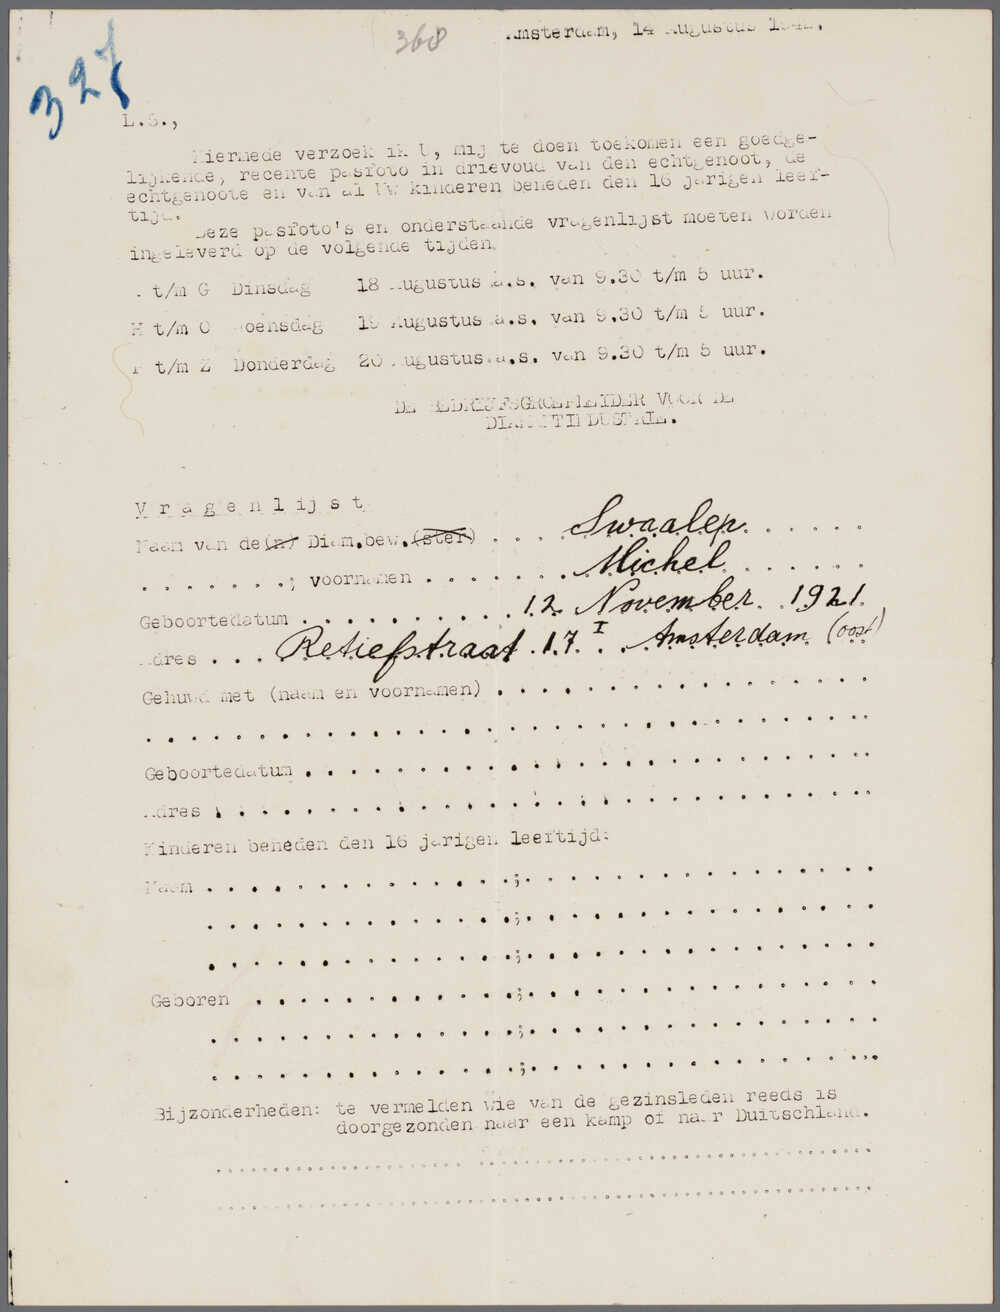 368
Amsterdam, 14 Augustus 1942.
327
L.S.,
Hiermede verzoek ik U, mij te doen toekomen een goedge-
lijkende, recente pasfoto in drievoud van den echtgenoot, de
echtgenoote en van al Uw kinderen beneden den 16 jarigen leef-
tijd.
Deze pasfoto's en onderstaande vragenlijst moeten worden
ingeleverd op de volgende tijden
t/m G Dinsdag 18 Augustus a.s. van 9.30 t/m 5 uur.
H t/m O Woensdag 19 Augustus a.s. van 9.30 t/m 5 uur.
P t/m Z Donderdag 20 Augustus a.s. van 9.30 t/m 5 uur.
DE BEDRIJFSGROEPLEIDER VOOR DE
DIAMANTINDUSTRIE.
Vragenlijst
Naam van de(n) Diam.bew.(ster) . . . . Swaalep . . . . . .
. . . . . . . ; voornamen . . . . . . . Michel . . . . . .
Geboortedatum . . . . . . . . . . 12 November 1921.
Adres . . . Retiefstraat 17 I . . Amsterdam (oost)
Gehuwd met (naam en voornamen) . . . . . . . . . . . . . . . .
. . . . . . . . . . . . . . . . . . . . . . . . . . . . . . .
Geboortedatum . . . . . . . . . . . . . . . . . . . . . . . .
Adres . . . . . . . . . . . . . . . . . . . . . . . . . . . .
Kinderen beneden den 16 jarigen leeftijd:
Naam . . . . . . . . . . . . . .;. . . . . . . . . . . . . . .
. . . . . . . . . . . . . .;. . . . . . . . . . . . . . .
. . . . . . . . . . . . . .;. . . . . . . . . . . . . . .
Geboren . . . . . . . . . . . .;. . . . . . . . . . . . . . .
. . . . . . . . . . . . . .;. . . . . . . . . . . . . . .
. . . . . . . . . . . . . .;. . . . . . . . . . . . . . .
Bijzonderheden: te vermelden wie van de gezinsleden reeds is
doorgezonden naar een kamp of naar Duitschland.